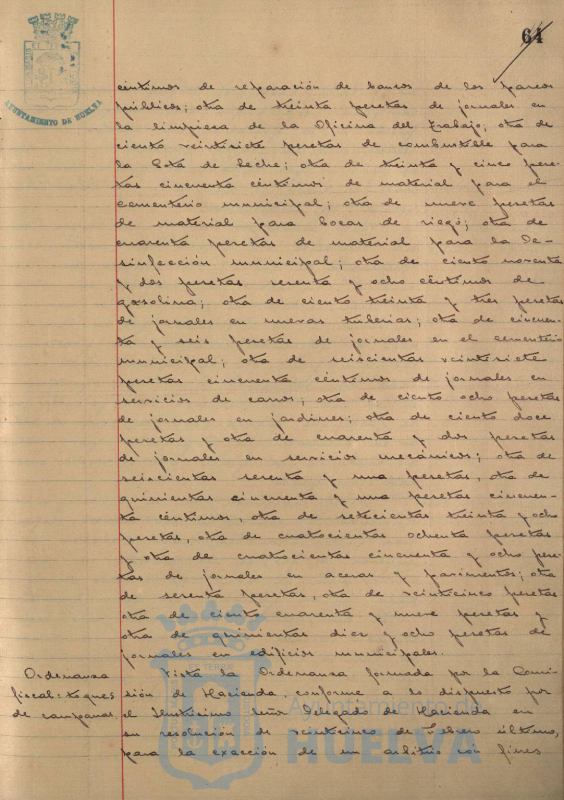 64
AYUNTAMIENTO DE HUELVA
céntimos de reparación de bancos de los paseos
públicos; otra de treinta pesetas de jornales en
la limpieza de la Oficina del Trabajo; otra de
ciento veintisiete pesetas de combustible para
la Gota de Leche; otra de treinta y cinco pese-
tas cincuenta céntimos de material para el
cementerio municipal; otra de nueve pesetas
de material para bocas de riego; otra de
cuarenta pesetas de material para la De-
sinfección municipal; otra de ciento noventa
y dos pesetas sesenta y ocho céntimos de
gasolina; otra de ciento treinta y tres pesetas
de jornales en nuevas tuberias; otra de cincuen-
ta y seis pesetas de jornales en el cementerio
municipal; otra de seiscientas veintisiete
pesetas cincuenta céntimos de jornales en
servicios de carros; otra de ciento ocho pesetas
de jornales en jardines; otra de ciento doce
pesetas y otra de cuarenta y dos pesetas
de jornales en servicios mecánicos; otra de
seiscientas sesenta y una pesetas, otra de
quinientas cincuenta y una pesetas cincuen-
ta céntimos, otra de setecientas treinta y ocho
pesetas, otra de cuatrocientas ochenta pesetas
y otra de cuatrocientas cincuenta y ocho pese-
tas de jornales en aceras y pavimentos; otra
de sesenta pesetas, otra de veinticinco pesetas
otra de ciento cuarenta y nueve pesetas y
otra de quinientas diez y ocho pesetas de
jornales en edificios municipales.
Ordenanza
fiscal: toques
de campanas.
Vista la Ordenanza formada por la Comi-
sión de Hacienda, conforme a lo dispuesto por
el Ilustrísimo Señor Delegado de Hacienda en
su resolución de veinticinco de Febrero último,
para la exacción de un arbitrio con fines
Ayuntamiento de
HUELVA